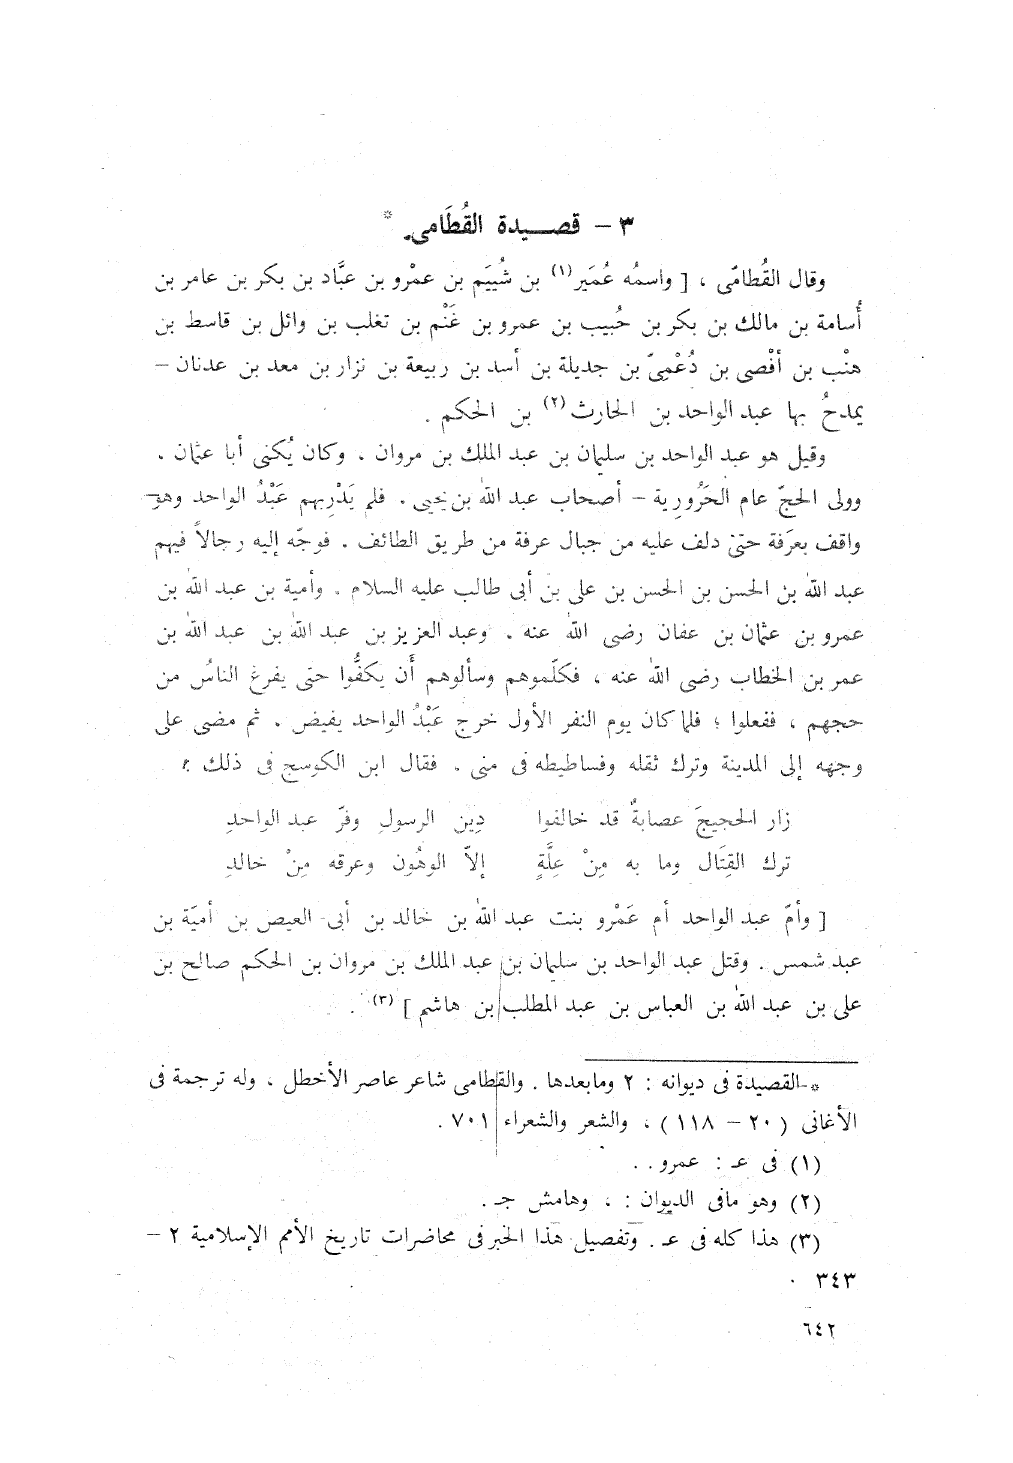 ٣ – قصيدة القُطَامى *
وقال القُطامّى ، [ واسمُه عُمَير(١) بن شُيَيَم بن عمْرو بن عبَّاد بن بكر بن عامر بن
أُسامة بن مالك بن بكر بن حُبيب بن عمرو بن غَنْم بن تغلب بن وائل بن قاسط بن
هنْب بن أفْصى بن دُعْمِىّ بن جديلة بن أسد بن ربيعة بن نزار بن معد بن عدنان –
يمدحُ بها عبد الواحد بن الحارث(٢) بن الحكم .
وقيل هو عبد الواحد بن سليمان بن عبد الملك بن مروان . وكان يُكنى أبا عثمان .
وولى الحجّ عام الحَرُورِية – أصحاب عبد الله بن يحيى . فلم يَدْرِبهم عَبْدُ الواحد وهو
واقف بعرَفة حتى دلف عليه من جبال عرفة من طريق الطائف . فوجّه إليه رجالاً فيهم
عبد الله بن الحسن بن الحسن بن على بن أبى طالب عليه السلام . وأمية بن عبد الله بن
عمرو بن عثمان بن عفان رضى الله عنه . وعبد العزيز بن عبد الله بن عبد الله بن
عمر بن الخطاب رضى الله عنه ، فكلّموهم وسألوهم أَن يكفُّوا حتى يفرغ الناسُ من
حجهم ، ففعلوا ؛ فلما كان يوم النفر الأول خرج عَبْدُ الواحد يفيض . ثم مضى على
وجهه إلى المدينة وترك ثقله وفساطيطه فى منى . فقال ابن الكوسج فى ذلك :
زار الحجيجَ عصابةٌ قد خالفوا دِين الرسولِ وفرّ عبد الواحدِ
ترك القِتَال وما به مِنْ عِلَّةٍ إلاّ الوهُون وعرقه مِنْ خالدِ
[ وأمّ عبد الواحد أم عَمْرو بنت عبد الله بن خالد بن أبى العيص بن أميّة بن
عبد شمس . وقتل عبد الواحد بن سليمان بن عبد الملك بن مروان بن الحكم صالح بن
على بن عبد الله بن العباس بن عبد المطلب بن هاشم ] (٣) .
* – القصيدة فى ديوانه : ٢ ومابعدها . والقطامى شاعر عاصر الأخطل ، وله ترجمة فى
الأغانى ( ٢٠ – ١١٨ ) ، والشعر والشعراء ٧٠١ .
(١) فى عـ : عمرو . .
(٢) وهو مافى الديوان : ، وهامش جـ .
(٣) هذا كله فى عـ . وتفصيل هذا الخبر فى محاضرات تاريخ الأمم الإسلامية ٢ –
٣٤٣ .
٦٤٢